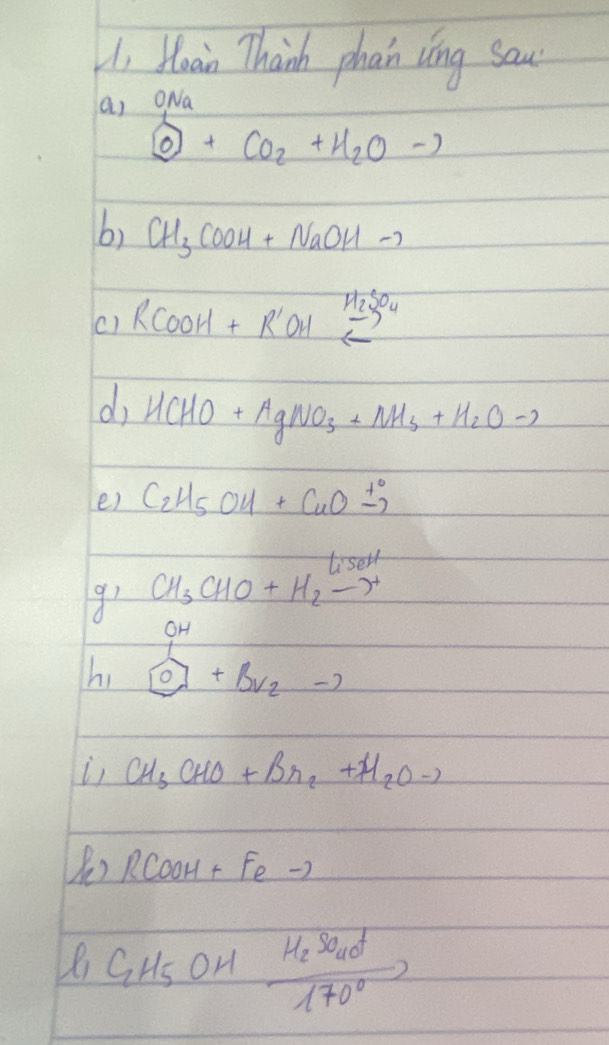 1, Hoàn Thành phản ứng sau:
a) ONa
⌬ + CO₂ + H₂O →
b) CH₃COOH + NaOH →
c) RCOOH + R'OH ⇄ H₂SO₄
d) HCHO + AgNO₃ + NH₃ + H₂O →
e) C₂H₅OH + CuO →t°
g) CH₃CHO + H₂ →
OH
h) ⌬ + Br₂ →
i) CH₃CHO + Br₂ + H₂O →
k) RCOOH + Fe →
l) C₂H₅OH H₂SO₄đ →
170°